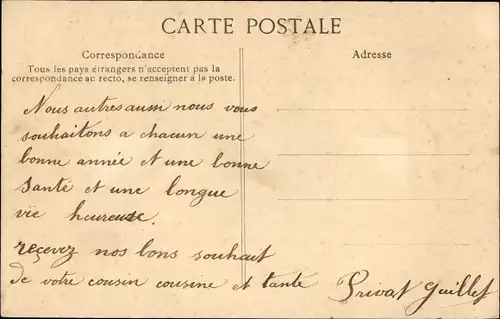 CARTE POSTALE
Correspondance
Tous les pays étrangers n'acceptent pas la
correspondance au recto, se renseigner à la poste.
Adresse
Nous autres aussi nous vous
souhaitons a chacun une
bonne année et une bonne
santé et une longue
vie heureuse.
reçevez nos bons souhait
de votre cousin cousine et tante Privat Guillet